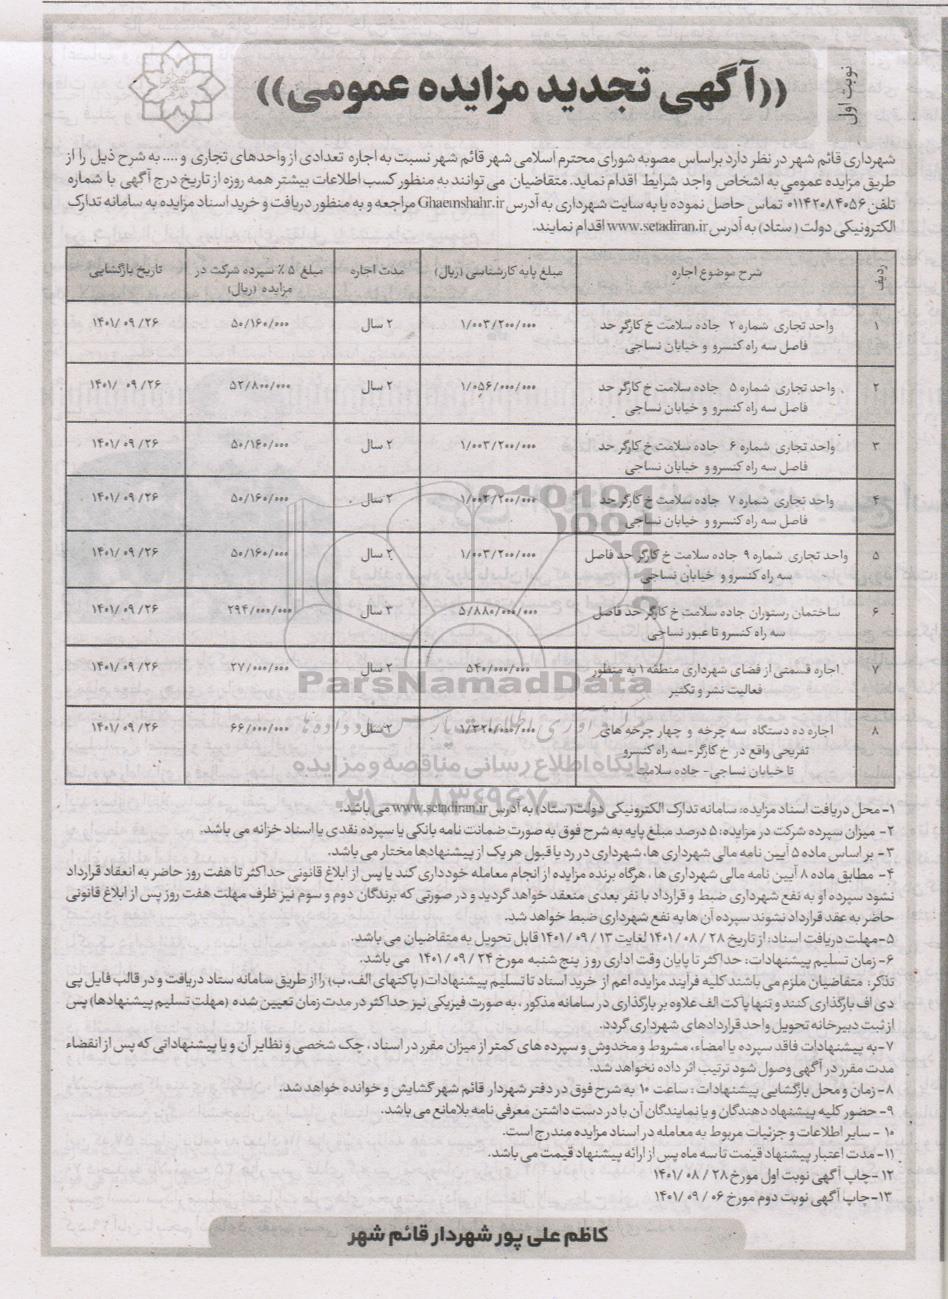 نوبت اول
((آگهی تجدید مزایده عمومی))
شهرداری قائم شهر در نظر دارد براساس مصوبه شورای محترم اسلامی شهر قائم شهر نسبت به اجاره تعدادی از واحدهای تجاری و .... به شرح ذیل را از
طریق مزایده عمومی به اشخاص واجد شرایط اقدام نماید. متقاضیان می توانند به منظور کسب اطلاعات بیشتر همه روزه از تاریخ درج آگهی با شماره
تلفن ۰۱۱۴۲۰۸۴۰۵۶ تماس حاصل نموده یا به سایت شهرداری به آدرس Ghaemshahr.ir مراجعه و به منظور دریافت و خرید اسناد مزایده به سامانه تدارک
الکترونیکی دولت ( ستاد) به آدرس www.setadiran.ir اقدام نمایند.
ردیف | شرح موضوع اجاره | مبلغ پایه کارشناسی (ریال) | مدت اجاره | مبلغ ۵ ٪ سپرده شرکت در | تاریخ بازگشایی
مزایده (ریال)
۱ | واحد تجاری شماره ۲ جاده سلامت خ کارگر حد | ۱/۰۰۳/۲۰۰/۰۰۰ | ۲ سال | ۵۰/۱۶۰/۰۰۰ | ۱۴۰۱/ ۰۹ /۲۶
فاصل سه راه کنسرو و خیابان نساجی
۲ | واحد تجاری شماره ۵ جاده سلامت خ کارگر حد | ۱/۰۵۶/۰۰۰/۰۰۰ | ۲ سال | ۵۲/۸۰۰/۰۰۰ | ۱۴۰۱/ ۰۹ /۲۶
فاصل سه راه کنسرو و خیابان نساجی
۳ | واحد تجاری شماره ۶ جاده سلامت خ کارگر حد | ۱/۰۰۳/۲۰۰/۰۰۰ | ۲ سال | ۵۰/۱۶۰/۰۰۰ | ۱۴۰۱/ ۰۹ /۲۶
فاصل سه راه کنسرو و خیابان نساجی
۴ | واحد تجاری شماره ۷ جاده سلامت خ کارگر حد | ۱/۰۰۳/۲۰۰/۰۰۰ | ۲ سال | ۵۰/۱۶۰/۰۰۰ | ۱۴۰۱/ ۰۹ /۲۶
فاصل سه راه کنسرو و خیابان نساجی
۵ | واحد تجاری شماره ۹ جاده سلامت خ کارگر حد فاصل | ۱/۰۰۳/۲۰۰/۰۰۰ | ۲ سال | ۵۰/۱۶۰/۰۰۰ | ۱۴۰۱/ ۰۹ /۲۶
سه راه کنسرو و خیابان نساجی
۶ | ساختمان رستوران جاده سلامت خ کارگر حد فاصل | ۵/۸۸۰/۰۰۰/۰۰۰ | ۳ سال | ۲۹۴/۰۰۰/۰۰۰ | ۱۴۰۱/ ۰۹ /۲۶
سه راه کنسرو تا عبور نساجی
۷ | اجاره قسمتی از فضای شهرداری منطقه ۱ به منظور | ۵۴۰/۰۰۰/۰۰۰ | ۲ سال | ۲۷/۰۰۰/۰۰۰ | ۱۴۰۱/ ۰۹ /۲۶
فعالیت نشر و تکثیر
۸ | اجاره ده دستگاه سه چرخه و چهار چرخه های | ۱/۳۲۰/۰۰۰/۰۰۰ | ۲ سال | ۶۶/۰۰۰/۰۰۰ | ۱۴۰۱/ ۰۹ /۲۶
تفریحی واقع در خ کارگر- سه راه کنسرو
تا خیابان نساجی- جاده سلامت
ParsNamadData
پایگاه اطلاع رسانی مناقصه و مزایده
۰۲۱-۸۸۳۴۹۶۷۰-۵
۱- محل دریافت اسناد مزایده: سامانه تدارک الکترونیکی دولت ( ستاد) به آدرس www.setadiran.ir می باشد.
۲- میزان سپرده شرکت در مزایده: ۵ درصد مبلغ پایه به شرح فوق به صورت ضمانت نامه بانکی یا سپرده نقدی یا اسناد خزانه می باشد.
۳- بر اساس ماده ۵ آیین نامه مالی شهرداری ها، شهرداری در رد یا قبول هر یک از پیشنهادها مختار می باشد.
۴- مطابق ماده ۸ آیین نامه مالی شهرداری ها ، هرگاه برنده مزایده از انجام معامله خودداری کند یا پس از ابلاغ قانونی حداکثر تا هفت روز حاضر به انعقاد قرارداد
نشود سپرده او به نفع شهرداری ضبط و قرارداد با نفر بعدی منعقد خواهد گردید و در صورتی که برندگان دوم و سوم نیز ظرف مهلت هفت روز پس از ابلاغ قانونی
حاضر به عقد قرارداد نشوند سپرده آن ها به نفع شهرداری ضبط خواهد شد.
۵-مهلت دریافت اسناد: از تاریخ ۲۸ / ۰۸ / ۱۴۰۱ لغایت ۱۳ / ۰۹ / ۱۴۰۱ قابل تحویل به متقاضیان می باشد.
۶- زمان تسلیم پیشنهادات: حداکثر تا پایان وقت اداری روز پنج شنبه مورخ ۲۴ / ۰۹ / ۱۴۰۱ می باشد.
تذکر: متقاضیان ملزم می باشند کلیه فرآیند مزایده اعم از خرید اسناد تا تسلیم پیشنهادات ( پاکتهای الف، ب) را از طریق سامانه ستاد دریافت و در قالب فایل پی
دی اف بارگذاری کنند و تنها پاکت الف علاوه بر بارگذاری در سامانه مذکور ، به صورت فیزیکی نیز حداکثر در مدت زمان تعیین شده (مهلت تسلیم پیشنهادها) پس
از ثبت دبیرخانه تحویل واحد قراردادهای شهرداری گردد.
۷-به پیشنهادات فاقد سپرده یا امضاء، مشروط و مخدوش و سپرده های کمتر از میزان مقرر در اسناد ، چک شخصی و نظایر آن و یا پیشنهاداتی که پس از انقضاء
مدت مقرر در آگهی وصول شود ترتیب اثر داده نخواهد شد.
۸- زمان و محل بازگشایی پیشنهادات : ساعت ۱۰ به شرح فوق در دفتر شهردار قائم شهر گشایش و خوانده خواهد شد.
۹- حضور کلیه پیشنهاد دهندگان و یا نمایندگان آن با در دست داشتن معرفی نامه بلامانع می باشد.
۱۰ - سایر اطلاعات و جزئیات مربوط به معامله در اسناد مزایده مندرج است.
۱۱- مدت اعتبار پیشنهاد قیمت تا سه ماه پس از ارائه پیشنهاد قیمت می باشد.
۱۲- چاپ آگهی نوبت اول مورخ ۲۸ / ۰۸ /۱۴۰۱
۱۳-چاپ آگهی نوبت دوم مورخ ۰۶ / ۰۹ /۱۴۰۱
کاظم علی پور شهردار قائم شهر